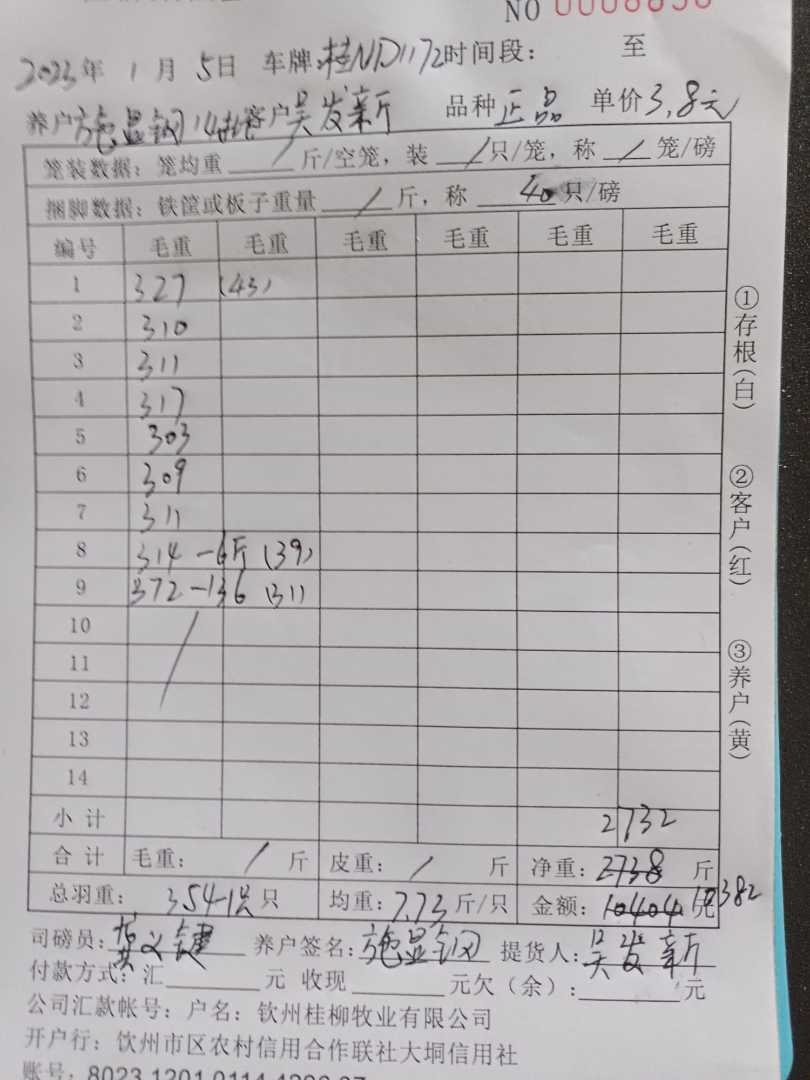 NO 0008836
2023年 1月 5日 车牌:桂ND1172 时间段: 至
养户施显钢14批客户吴发新 品种正品 单价3.8元
笼装数据:笼均重 / 斤/空笼,装 / 只/笼,称 / 笼/磅
捆脚数据:铁筐或板子重量 / 斤,称 40 只/磅
编号 毛重 毛重 毛重 毛重 毛重 毛重
1 327 (43)
2 310
3 311
4 317
5 303
6 309
7 311
8 314-6斤(39)
9 372-136 (31)
10
11
12
13
14
小计 2732
合计 毛重: / 斤 皮重: / 斤 净重:2738 斤
总羽重: 354-1只 只 均重:7.73斤/只 金额:10404元 10382
司磅员:黄义键 养户签名:施显钢 提货人:吴发新
付款方式:汇 元 收现 元欠(余): 元
公司汇款帐号:户名:钦州桂柳牧业有限公司
开户行:钦州市区农村信用合作联社大垌信用社
①存根(白)
②客户(红)
③养户(黄)